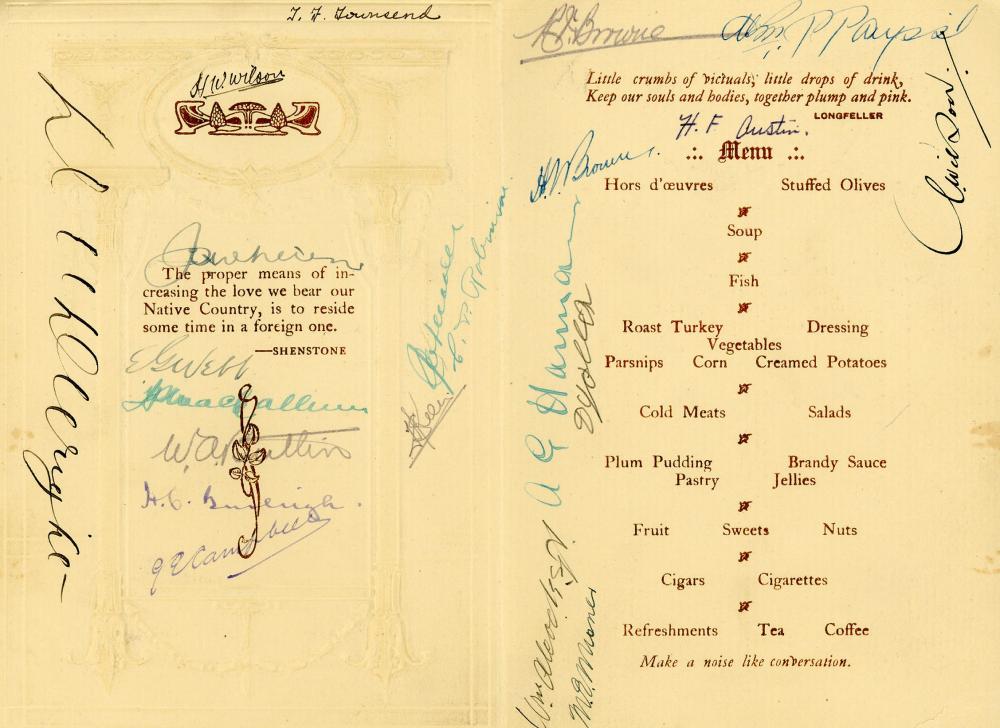 T. F. Townsend
H. W. Wilson
The proper means of in-
creasing the love we bear our
Native Country, is to reside
some time in a foreign one.
—SHENSTONE
E G Webb
W. A.
H. C. Burleigh.
G E Campbell
C. V. Robinson.
R. F. Browne
Wm. P
Little crumbs of victuals, little drops of drink,
Keep our souls and bodies, together plump and pink.
LONGFELLER
H. F Austin.
H. W. Browne.
.:. Menu .:.
Hors d'œuvres Stuffed Olives
Soup
Fish
Roast Turkey Dressing
Vegetables
Parsnips Corn Creamed Potatoes
Cold Meats Salads
Plum Pudding Brandy Sauce
Pastry Jellies
Fruit Sweets Nuts
Cigars Cigarettes
Refreshments Tea Coffee
Make a noise like conversation.
A G Hannan